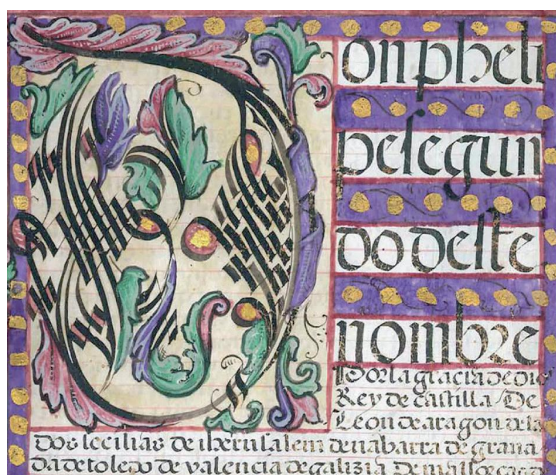 Don pheli
pe segun
do deste
nombre
Por la gracia de di
Rey de castilla De
Leon de aragon de la
dos secilias de iherusalem de nabarra de grana
da de toledo de valencia de galizia De